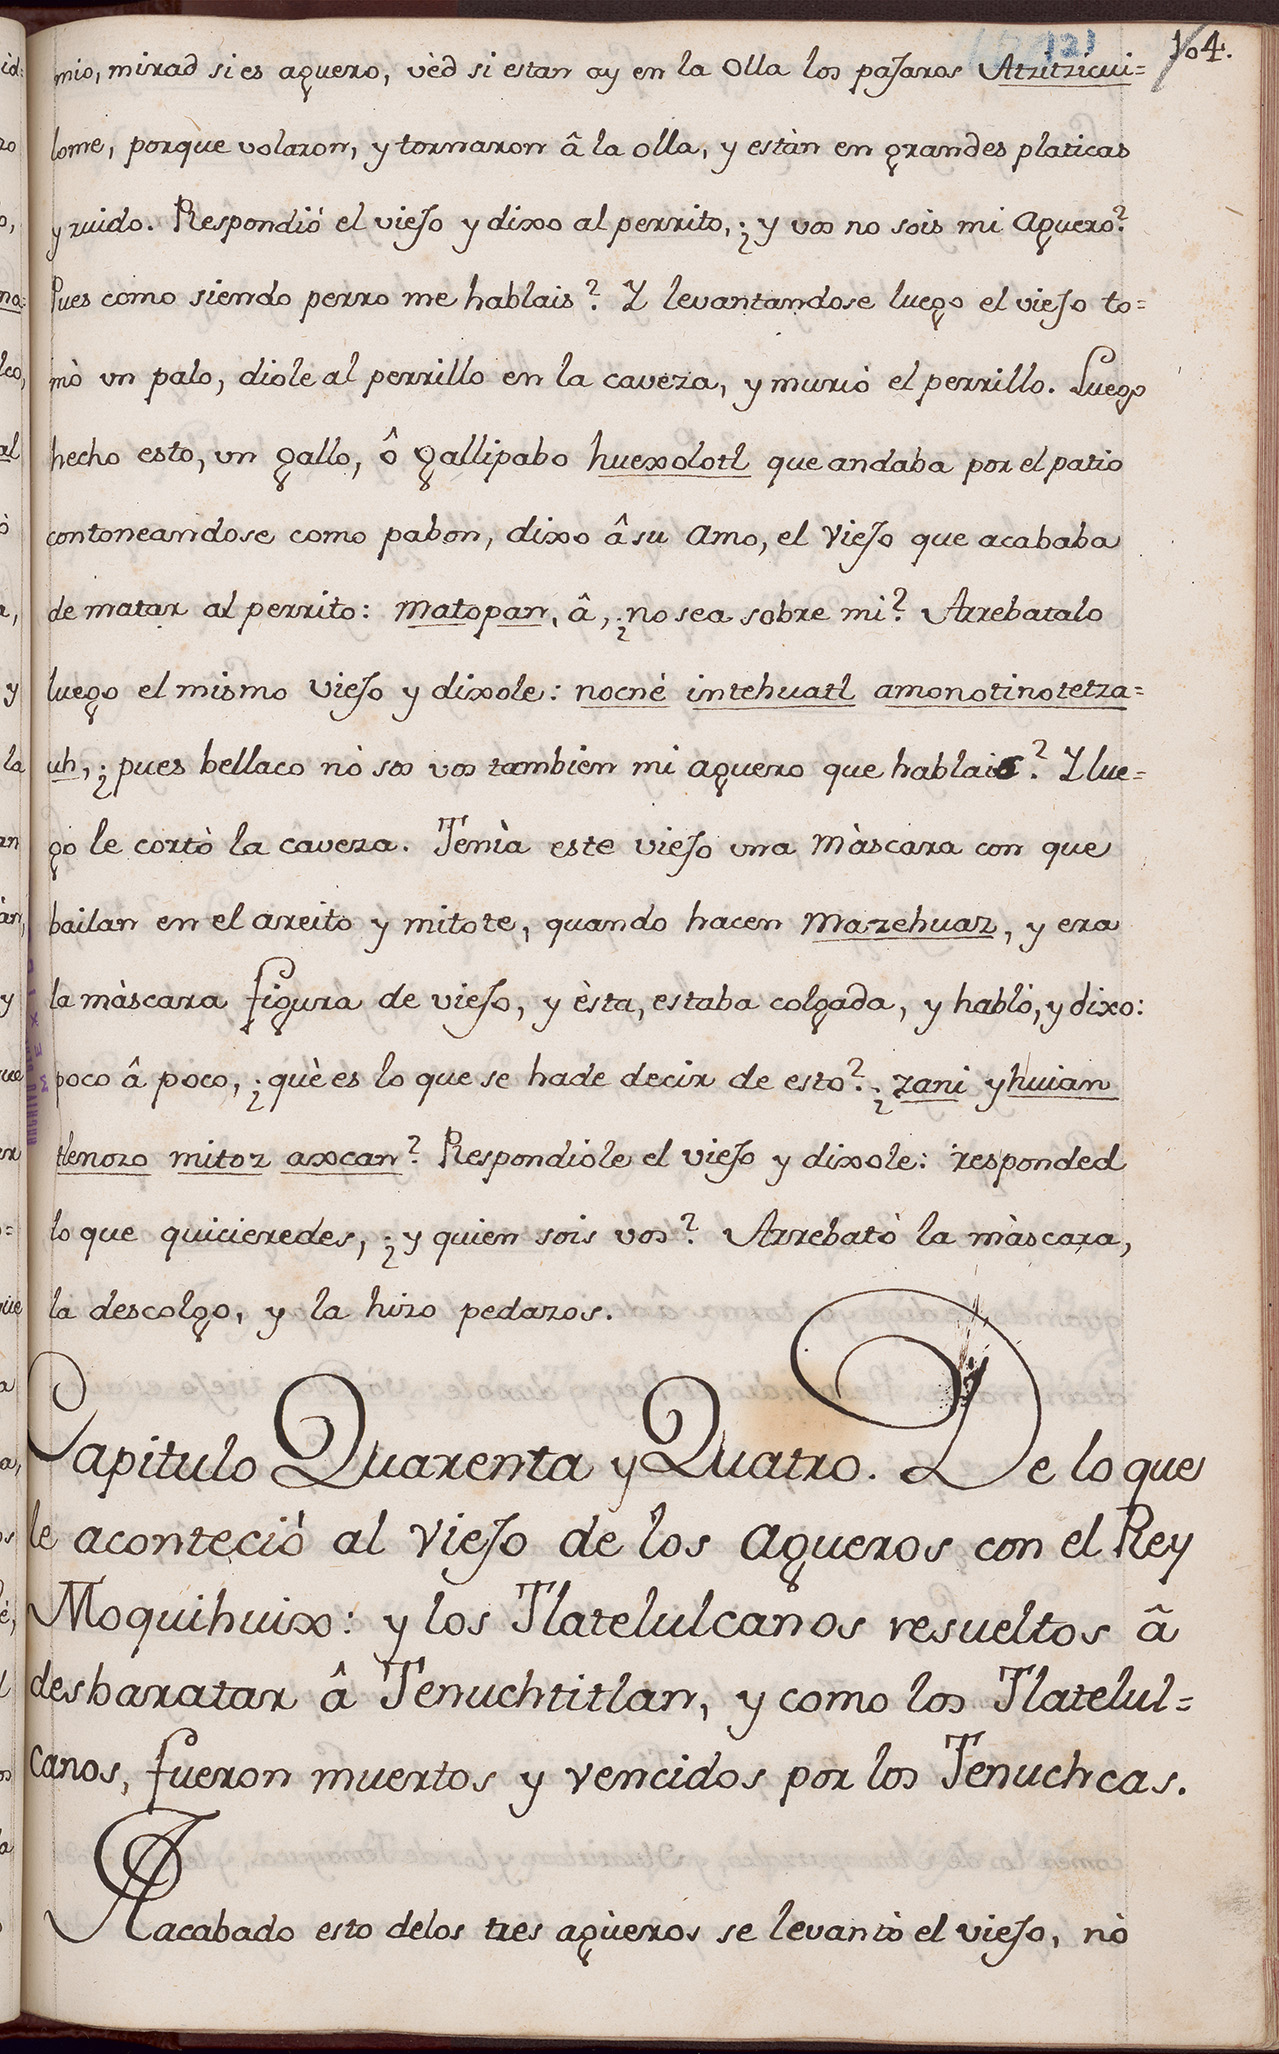 121
104.
mio, mirad si es aguero, vèd si estan ay en la Olla los pajaros Atzitzicui=
lome, porque volaron, y tornaron â la olla, y estàn en grandes platicas
y ruido. Respondió el viejo y dixo al perrito, ¿y vos no sois mi Aguero?
Pues como siendo perro me hablais? Y levantandose luego el viejo to=
mò un palo, diole al perrillo en la caveza, y murió el perrillo. Luego
hecho esto, un gallo, ô gallipabo huexolotl que andaba por el patio
contoneandose como pabon, dixo â su Amo, el Viejo que acababa
de matar al perrito: Matopan, â, ¿no sea sobre mi? Arrebatalo
luego el mismo Viejo y dixole: nocnè intehuatl amonotinotetza=
uh, ¿pues bellaco nò sos vos tambien mi aguero que hablais? Y lue=
go le cortò la caveza. Tenìa este viejo una Màscara con que
bailan en el areito y mitote, quando hacen Mazehuaz, y era
la màscara figura de viejo, y èsta, estaba colgada, y habló, y dixo:
poco â poco, ¿què es lo que se hade decir de esto? ¿zani yhuian
tlenozo mitoz axcan? Respondiole el viejo y dixole: responded
lo que quicieredes, ¿y quien sois vos? Arrebatò la màscara,
la descolgo, y la hizo pedazos.
Capitulo Quarenta y Quatro. De lo que
le aconteció al Viejo de los Agueros con el Rey
Moquihuix: y los Tlatelulcanos resueltos â
desbaratar â Tenuchtitlan, y como los Tlatelul=
canos, fueron muertos y vencidos por los Tenuchcas.
Aacabado esto delos tres agùeros se levantò el viejo, nò